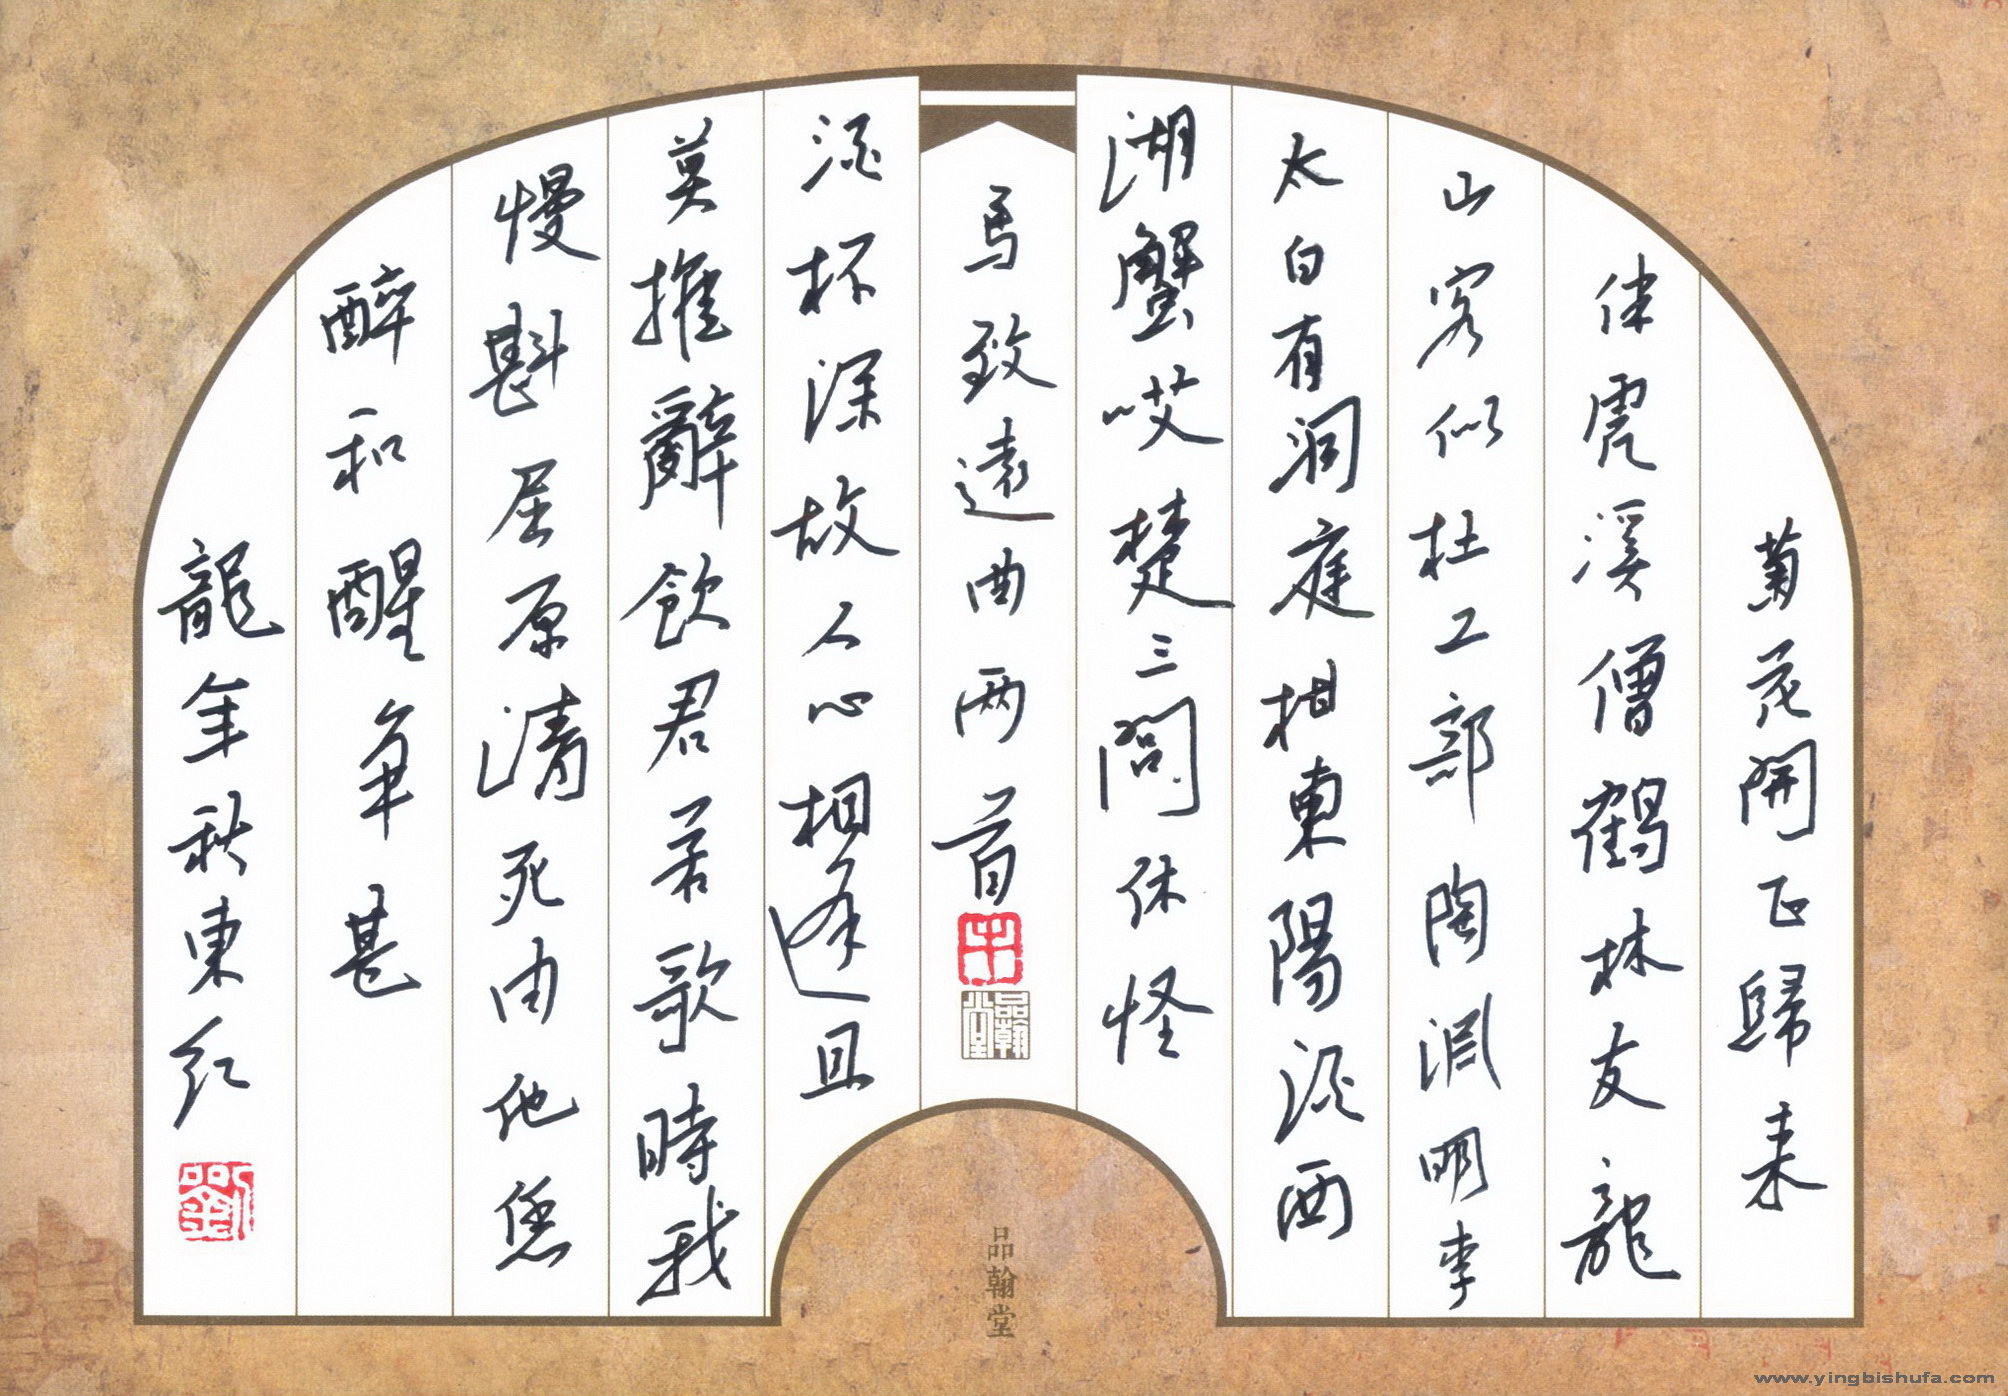 菊花開正歸来
伴虎溪僧鶴林友龍
山客似杜工部陶淵明李
太白有洞庭柑東陽酒西
湖蟹哎楚三閭休怪
馬致遠曲两首
品翰堂
酒杯深故人心相逢且
莫推辭飲君若歌時我
慢斟屈原清死由他恁
醉和醒争甚
龍年秋東红
劉
品翰堂
www.yingbishufa.com